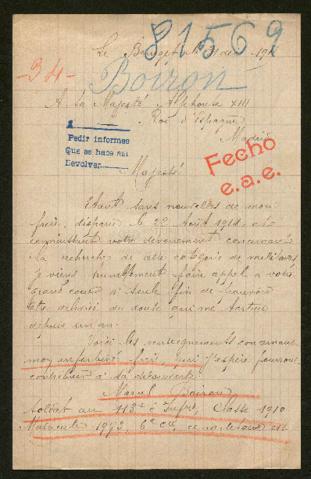 81569
Le 31 191
-34-
Boiron
A Sa Majesté Alphonse XIII
Roi d'Espagne
Madrid
Pedir informes
Que se hace así
Devolver
Fecho
e.a.e.
Majesté
Etant sans nouvelles de mon
frère, disparu le 22 Août 1914, et
connaissant votre dévouement concernant
la recherche de cette catégorie de militaires
je viens humblement faire appel à votre
grand coeur à seule fin de pouvoir
être délivré du doute qui me torture
depuis un an.
Voici les renseignements concernant
mon infortuné frère, qui j'espère pourront
contribuer à sa découverte:
Boiron
soldat au 113e d'Infrie, Classe 1910
Matricule 6e Cie,